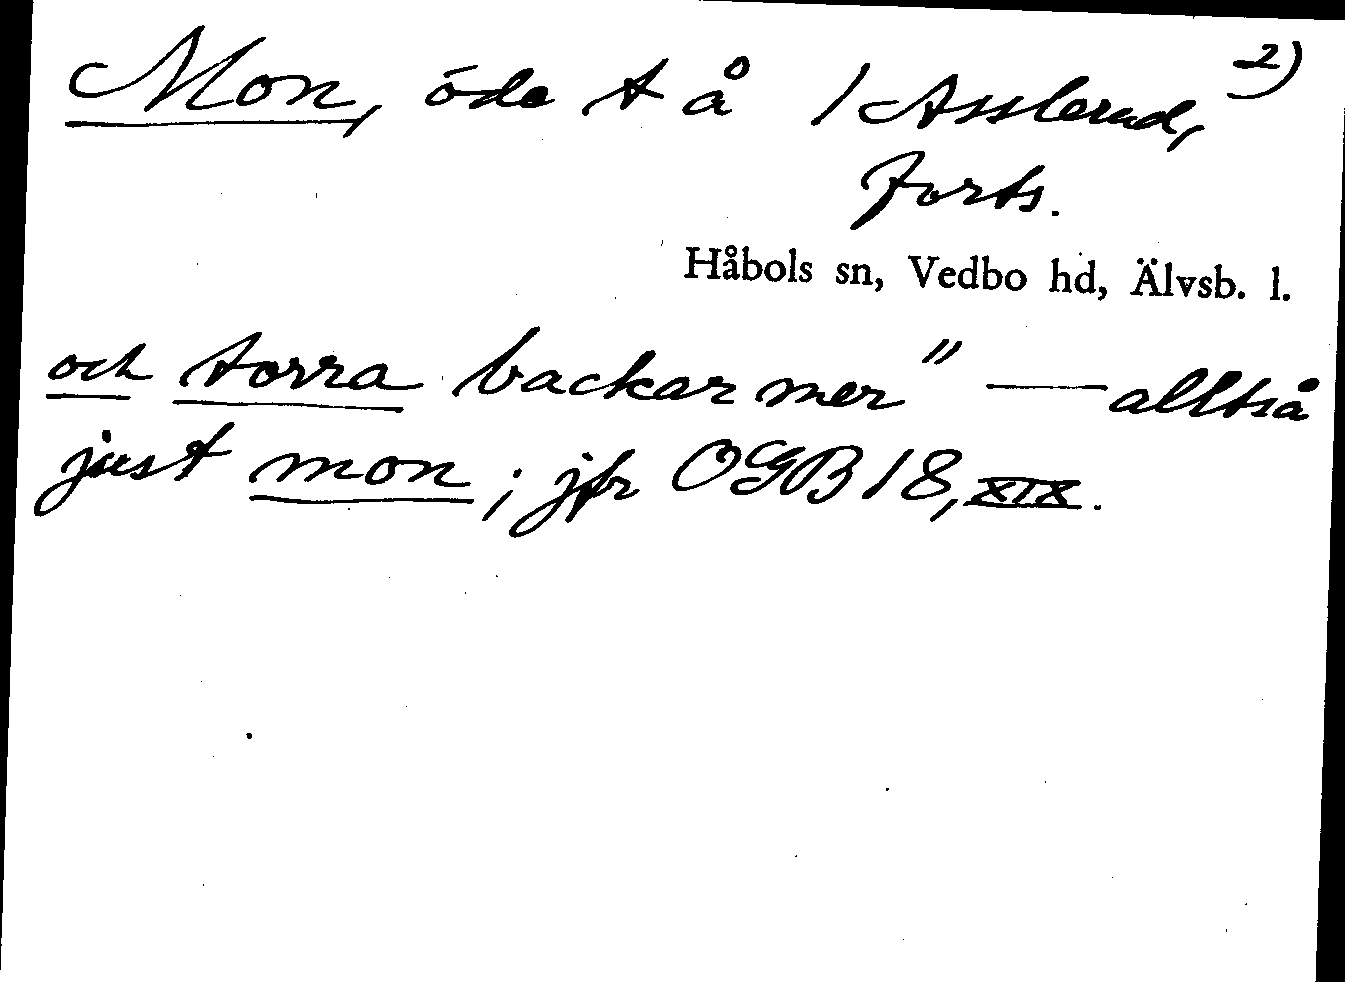 Mon, öde t å 1 Asslerud, 2)
Forts.
Håbols sn, Vedbo hd, Älvsb. l.
och torra backar mer" — alltså
just mon; jfr OGB 18, XIX.